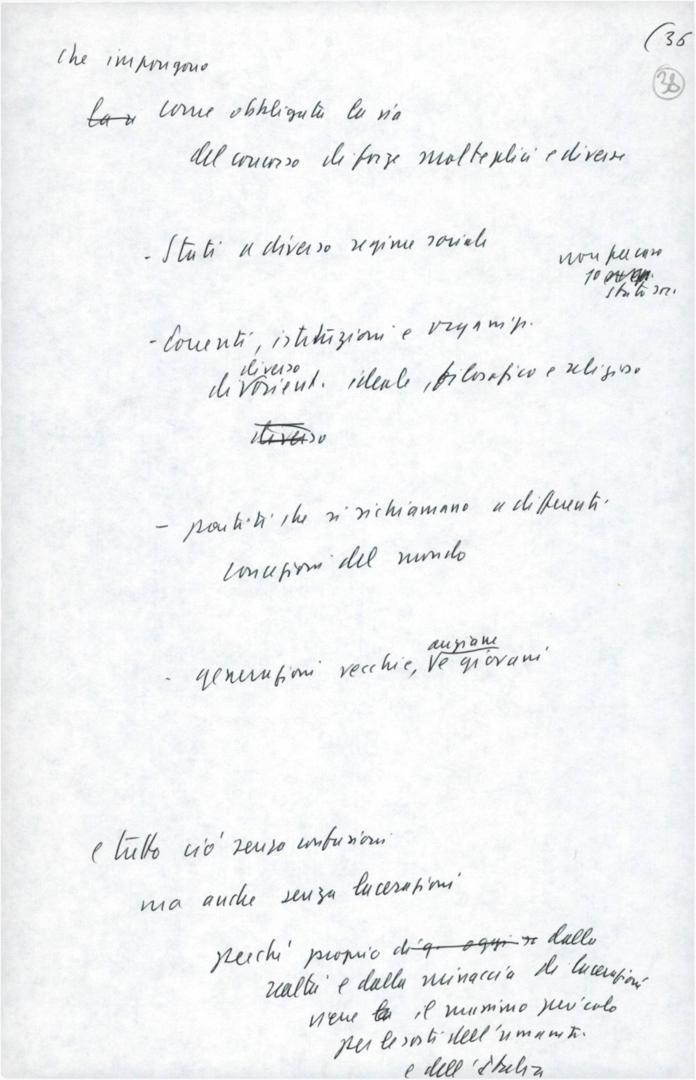 (36
36
che impongono
la v come obbligata la via
del concorso di forze molteplici e diverse
- Stati a diverso regime sociale
non per caso
10
Stati soc.
- Correnti, istituzioni e organizz.
diverso
di orient. ideale, filosofico e religioso
diverso
- partiti che si richiamano a differenti
concezioni del mondo
anziane
- generazioni vecchie, e giovani
e tutto ciò senza confusioni
ma anche senza lacerazioni
perché proprio di q oggi dalla
realtà e dalla minaccia di lacerazioni
viene la il massimo pericolo
per le sorti dell'umanità
e dell'Italia